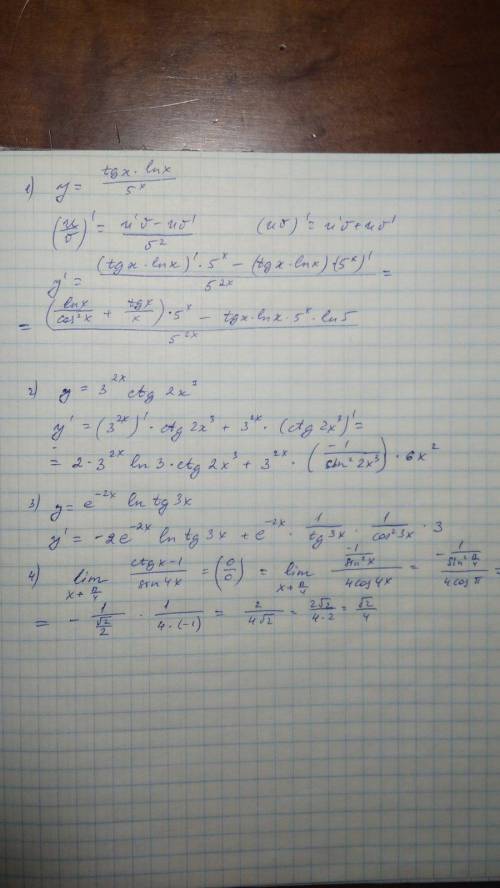 1) y = (tgx · lnx)/5^x
(u/v)' = (u'v − uv')/v² (uv)' = u'v + uv'
y' = ((tgx · lnx)' · 5^x − (tgx · lnx) · (5^x)')/5^(2x) =
= ((lnx/cos²x + tgx/x) · 5^x − tgx · lnx · 5^x · ln5)/5^(2x)
2) y = 3^(2x) ctg 2x³
y' = (3^(2x))' · ctg 2x³ + 3^(2x) · (ctg 2x³)' =
= 2 · 3^(2x) ln 3 · ctg 2x³ + 3^(2x) · (−1/sin² 2x³) · 6x²
3) y = e^(−2x) ln tg 3x
y' = −2e^(−2x) ln tg 3x + e^(−2x) · 1/tg 3x · 1/cos² 3x · 3
4) lim x→π/4 (ctgx − 1)/sin 4x = (0/0) = lim x→π/4 (−1/sin²x)/(4cos 4x) = (−1/sin² π/4)/(4cos π) =
= − 1/(√2/2) · 1/(4 · (−1)) = 2/(4√2) = 2√2/(4 · 2) = √2/4